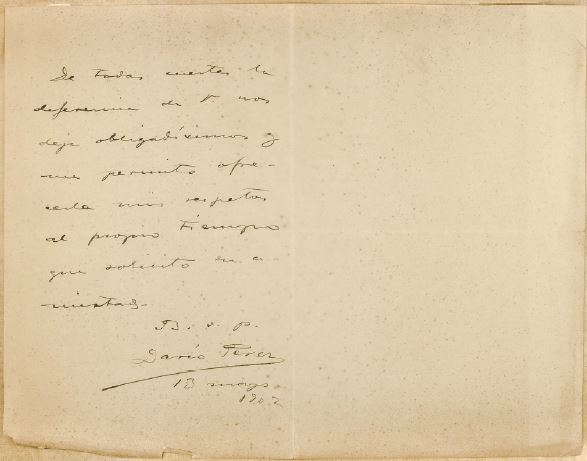 De todas suertes la
deferencia de V. nos
deja obligadísimos y
me permito ofre-
cerle mis respetos
al propio tiempo
que solicito su a-
mistad.
B. s. p.
Darío Perez
13 mayo
1902